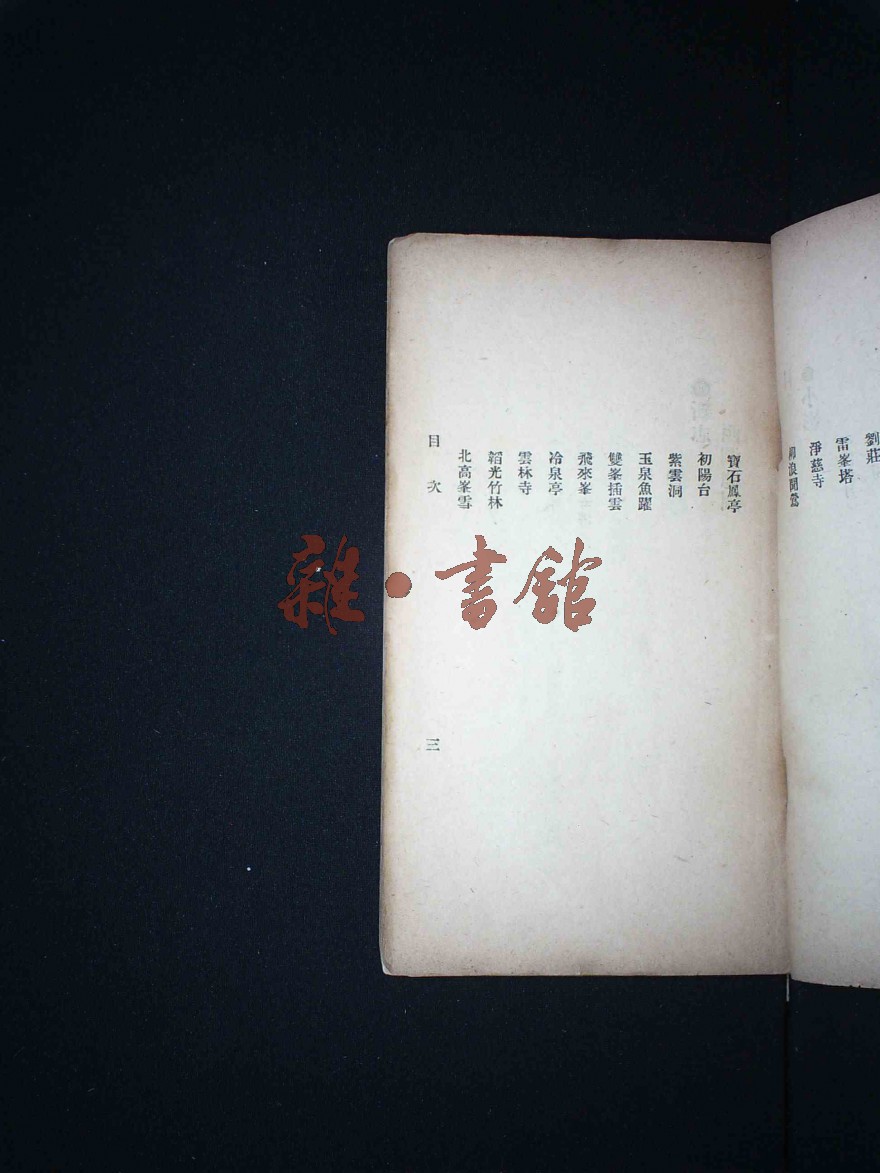 劉莊
雷峯塔
淨慈寺
柳浪聞鶯
寶石鳳亭
初陽台
紫雲洞
玉泉魚躍
雙峯插雲
飛來峯
冷泉亭
雲林寺
韜光竹林
北高峯雪
目次
三
雜·書館